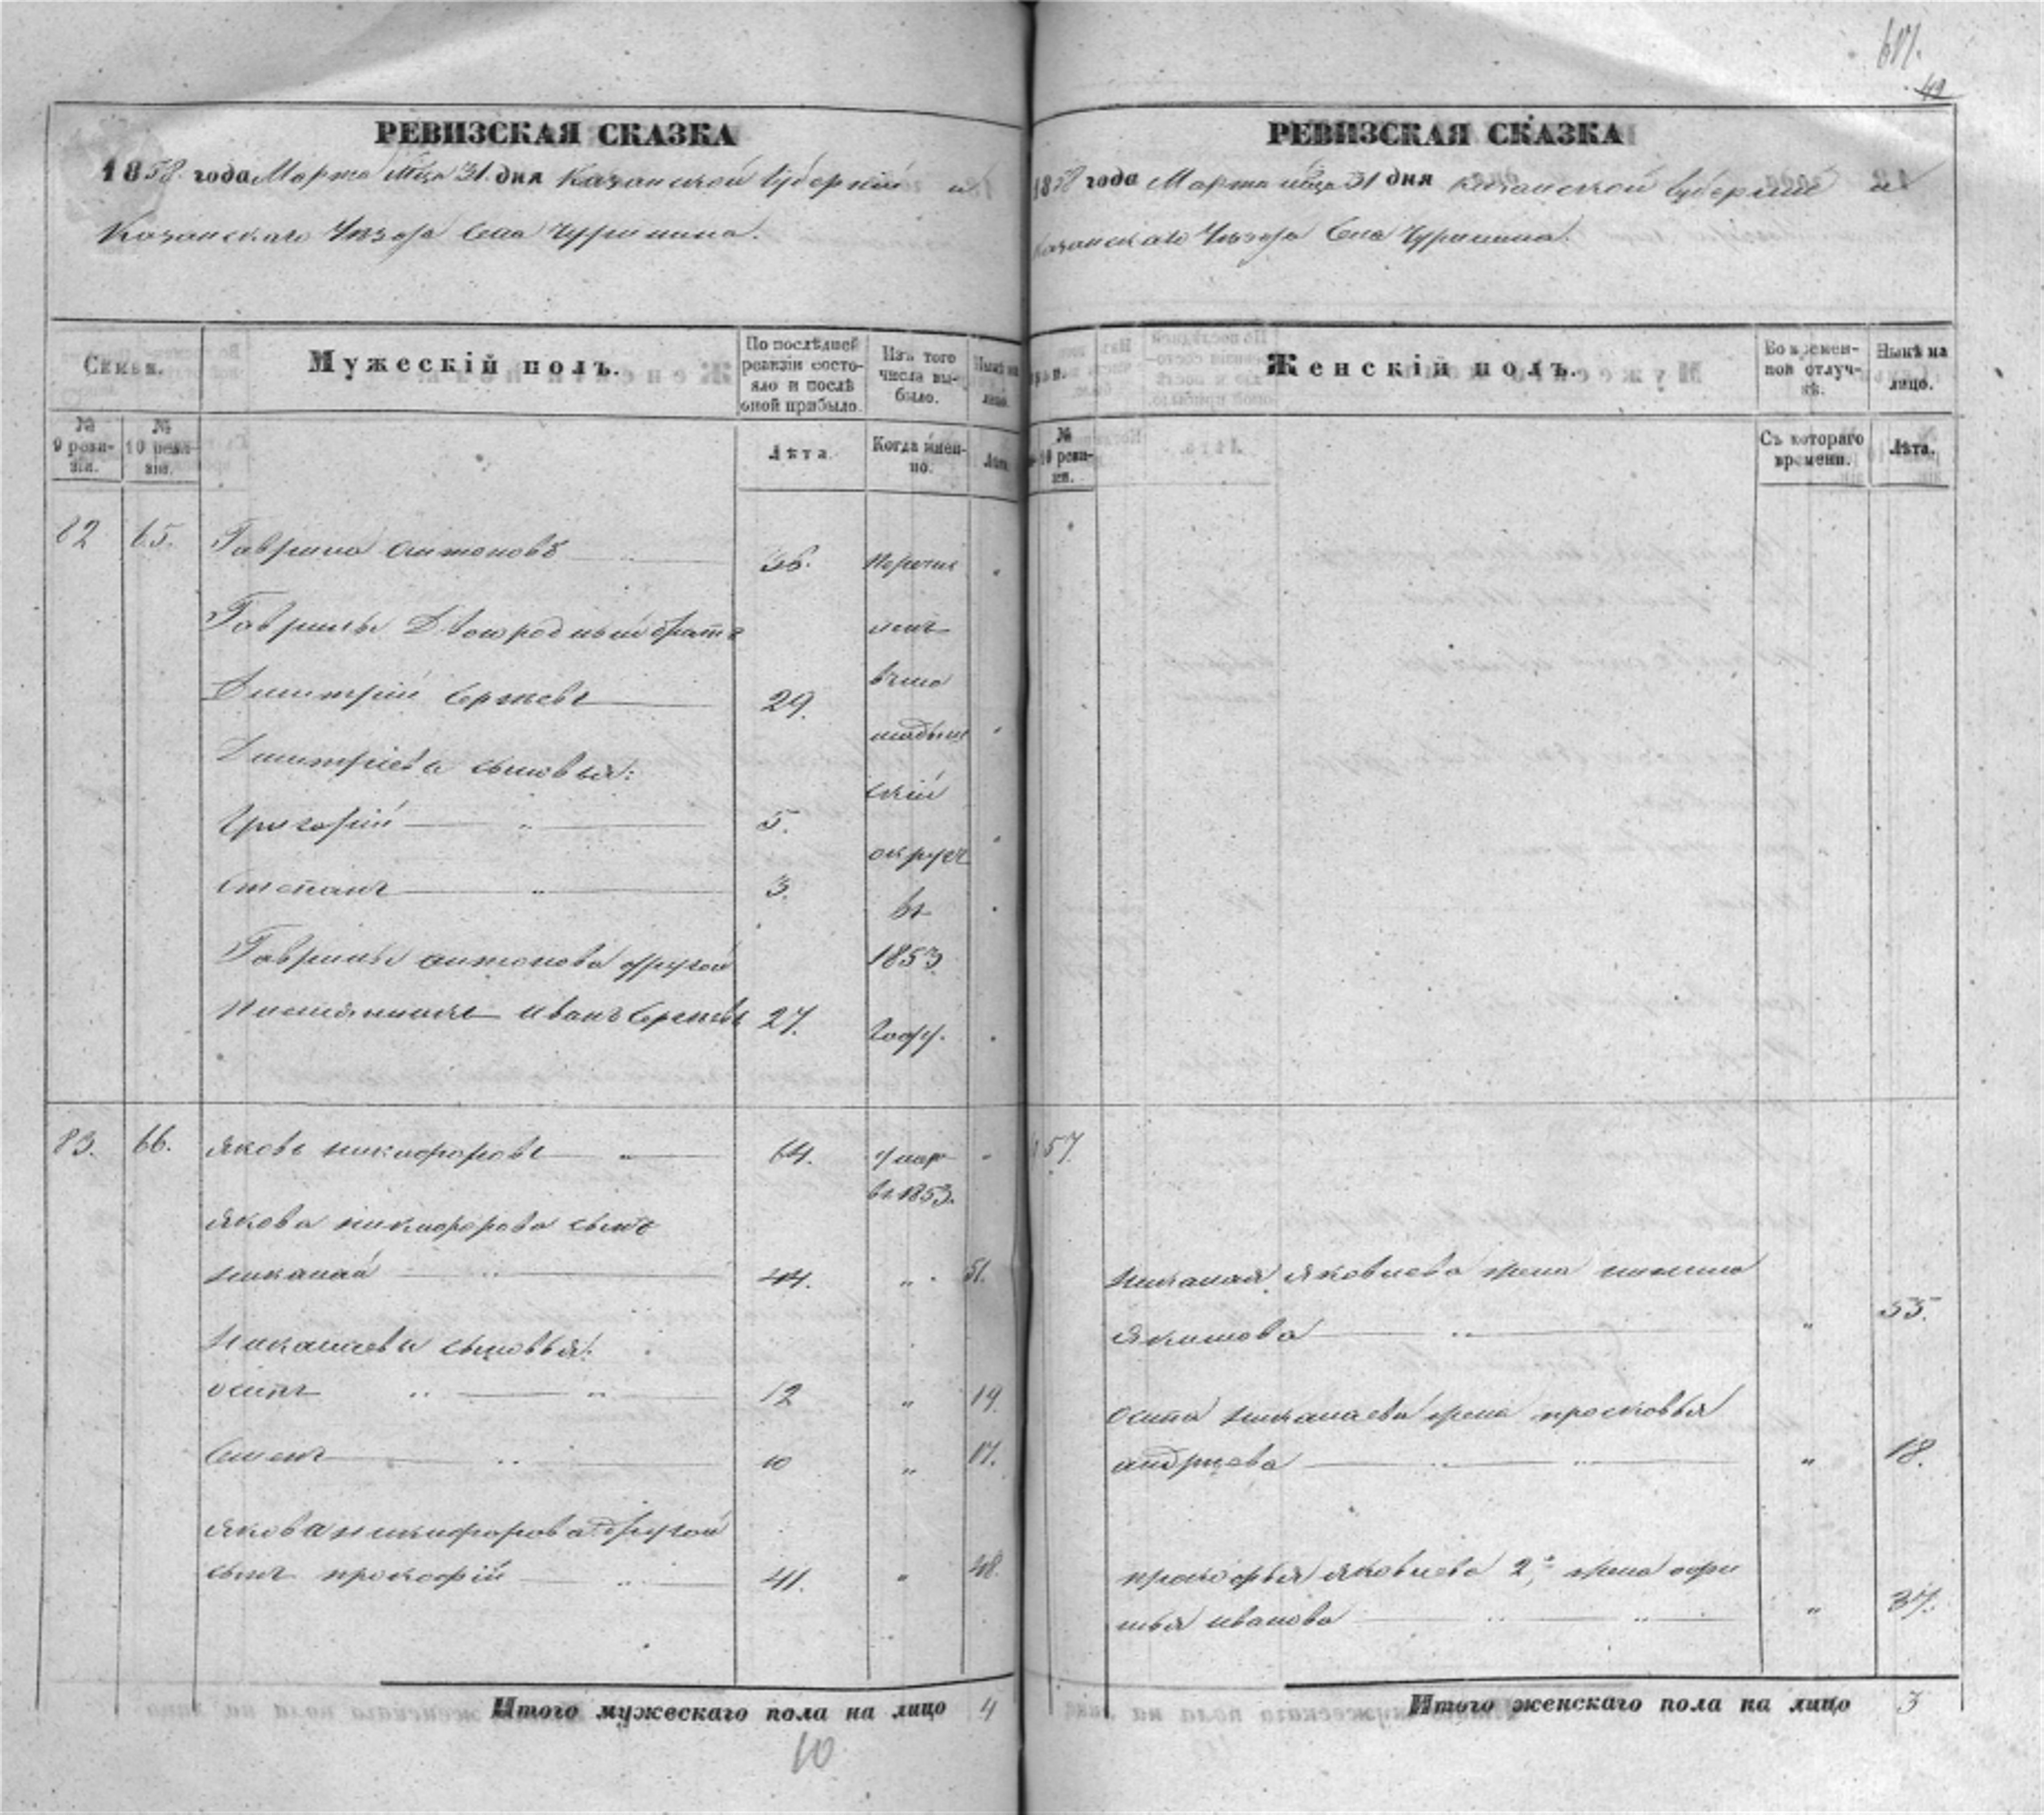 42
РЕВИЗСКАЯ СКАЗКА
1858 года Марта Мца 31 дня Казанской Губерніи и
Казанскаго Уѣзда Села Чурилина.
Семьи.
Мужескій полъ.
По послѣдней ревизіи состояло и послѣ оной прибыло.
Изъ того числа выбыло.
Нынѣ на лицо.
№ 9 ревизіи.
№ 10 ревизіи.
Лѣта.
Когда имен-но.
Лѣта.
82 65. Гаврила Антоновъ 36. Перечис
Гаврилы Двоюродный братъ ленъ
Дмитрій Сергѣевъ 29.
Дмитріева сыновья: скій
Григорій 5. округъ
Степанъ 3. въ
Гаврилы Антонова другой 1853
племянникъ Иванъ Сергѣевъ 27. году.
83. 66. Яковъ Никифоровъ 64. умер
въ 1853.
Якова Никифорова сынъ
Николай 44. " 51.
Николаевы сыновья:
Осипъ 12 " 19.
Семенъ 10 " 17.
Якова Никифорова другой
сынъ Прокофій 41. " 48.
Итого мужескаго пола на лицо 4
10
РЕВИЗСКАЯ СКАЗКА
1858 года Марта мца 31 дня Казанской Губерніи и
Казанскаго Уѣзда Села Чурилина.
Женскій полъ.
Во времен-ной отлуч-кѣ.
Нынѣ на лицо.
№ 10 реви-зіи.
Съ котораго времени.
Лѣта.
Николая Яковлева жена
Якимова " 55.
Осипа Николаева жена Просковья
Андреева " 18.
Прокофья Яковлева 2я жена Софи
Иванова " 37.
Итого женскаго пола на лицо 3